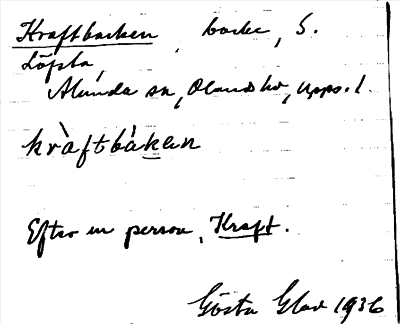 Kraftbacken, backe, S.
Löfsta,
Alunda sn, Olands hd, Upps. l.
kràftbàkən
Efter en person, Kraft.
Gösta Glad 1936